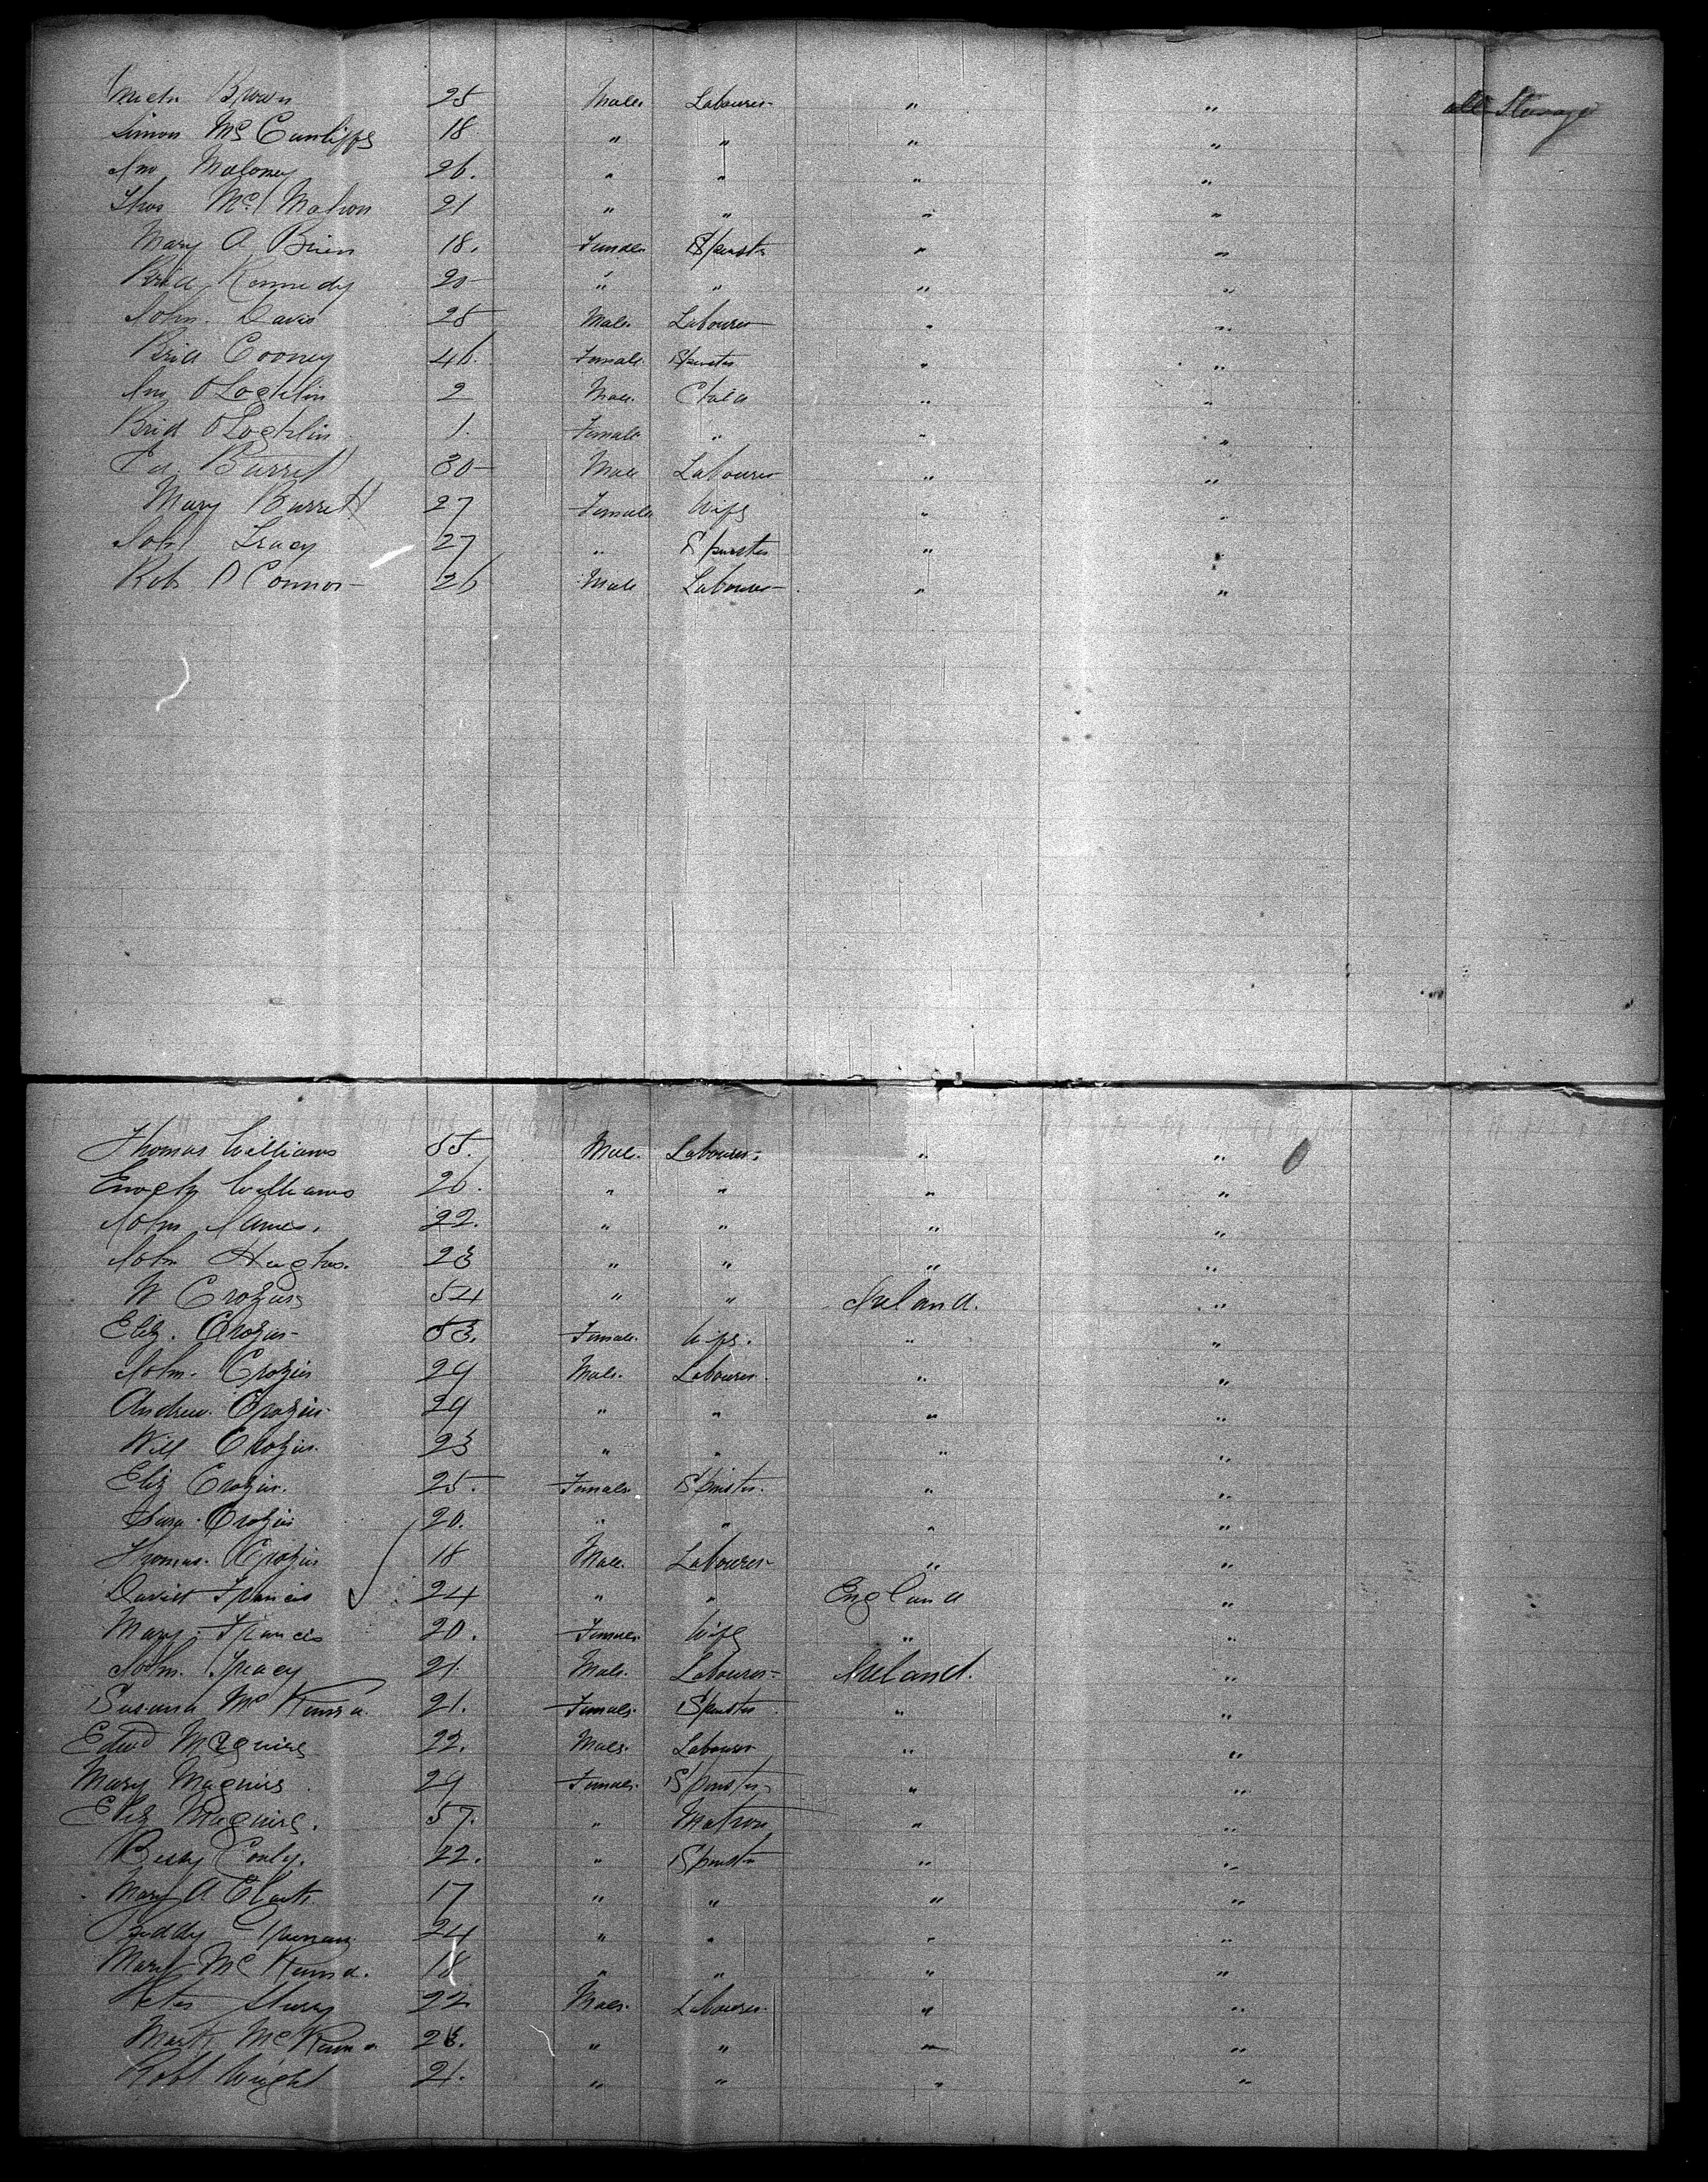 Mich Brown 25 Male Labourer " " all Steerage
Simon Mc Cunliffe 18 " " " "
Jno Maloney 26. " " " "
Thos Mc Mahon 21 " " " "
Mary A Brien 18. Female Spinstr " "
Brid Kennedy 20 " " " "
John Davis 25 Male Labourer " "
Brid Cooney 46. Female Spinster " "
Jno O'Loghlin 2 Male Child " "
Brid O'Loghlin 1. Female " " "
Ed. Burrett 30 Male Labourer " "
Mary Burrett 27 Female Wife " "
Tracy 27 " Spinster " "
Rob O Connor 26 Male Labourer " "
Thomas Williams 55. Male Labourer " "
Enoch Williams 26. " " " "
John James. 22. " " " "
John Hughes. 23 " " " "
W Crozier 54 " " Ireland. "
Eliz. Crozier 53. Female. Wife. " "
John. Crozier 29 Male. Labourer. " "
Andrew. Crozier 29 " " " "
Will Crozier. 23 " " " "
Eliz Crozier. 25. Female Spinster. " "
Crozier 20. " " " "
Thomas. Crozier 18 Male. Labourer " "
David Francis 24 " " England "
Mary. Francis 20. Female Wife " "
John. Treacy 21. Male. Labourer Ireland. "
Susana Mc Kenna 21. Female. Spinster " "
Edwd Maguire 22. Male. Labourer " "
Mary Maguire 29 Female. Spinster " "
Eliz Maguire. 57. " Matron " "
Bessy Conly. 22. " Spinstr " "
Mary A Clark 17 " " " "
Biddy 24 " " " "
Mary Mc Kenna. 18 " " " "
Peter 22 Male. Labourer. " "
Mark McKenna " " " "
Robt Wright 21. " " " "